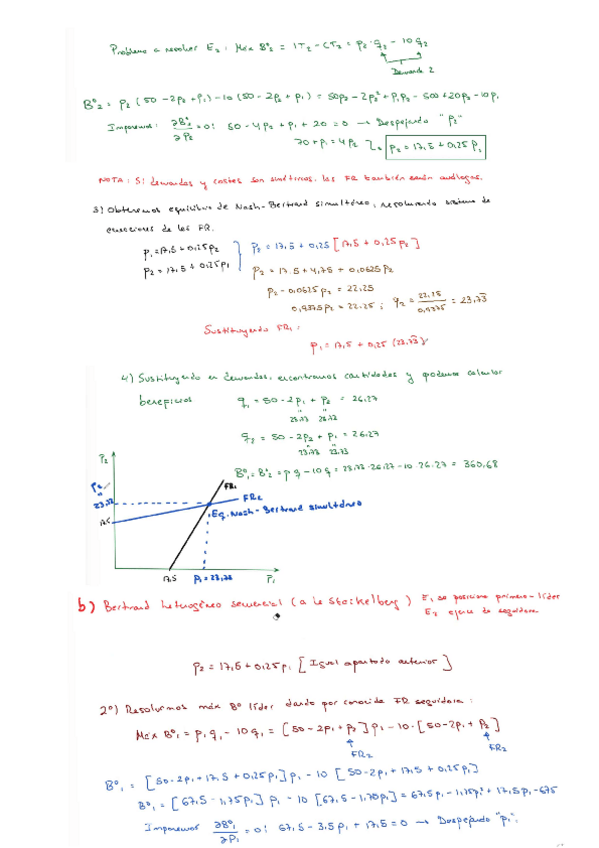 Problema a resolver E₂: Máx Bº₂ = IT₂ - CT₂ = p₂·q₂ - 10q₂
Demanda 2
Bº₂ = p₂ (50 - 2p₂ + p₁) - 10 (50 - 2p₂ + p₁) = 50p₂ - 2p₂² + p₁p₂ - 500 + 20p₂ - 10p₁
Imponemos: ∂Bº₂/∂p₂ = 0: 50 - 4p₂ + p₁ + 20 = 0 → Despejando "p₂"
70 + p₁ = 4p₂ p₂ = 17,5 + 0,25 p₁
NOTA: Si demandas y costes son simétricos, las FR también serán análogas.
3) Obtenemos equilibrio de Nash-Bertrand simultáneo, resolviendo sistema de
ecuaciones de las FR.
p₁ = 17,5 + 0,25p₂
p₂ = 17,5 + 0,25p₁
p₂ = 17,5 + 0,25 [17,5 + 0,25p₂]
p₂ = 17.5 + 4,75 + 0,0625p₂
p₂ - 0,0625p₂ = 22,25
0,9375p₂ = 22,25 ; q₂ = 22,25/0,9375 = 23,73
Sustituyendo FR₁:
p₁ = 17,5 + 0,25 (23,73)
4) Sustituyendo en demandas, encontramos cantidades y podemos calcular
beneficios
q₁ = 50 - 2p₁ + p₂ = 26,27
23,73 23,73
q₂ = 50 - 2p₂ + p₁ = 26,27
23,73 23,73
Bº₁ = Bº₂ = p q - 10q = 23,73·26,27 - 10·26,27 = 360,68
P₂
FR₁
FR₂
P₂
23,73
Eq. Nash-Bertrand simultáneo
17,5
17,5
P₁ = 23,73
P₁
b) Bertrand heterogéneo secuencial (a le Stackelberg) E₁ se posiciona primero → líder
E₂ ejerce de seguidora
p₂ = 17,5 + 0,25p₁ [Igual apartado anterior]
2º) Resolvemos máx Bº líder dando por conocida FR seguidora:
Máx Bº₁ = p₁ q₁ - 10q₁ = [50 - 2p₁ + p₂] p₁ - 10·[50 - 2p₁ + p₂]
FR₂
FR₂
Bº₁ = [50 - 2p₁ + 17,5 + 0,25p₁] p₁ - 10 [50 - 2p₁ + 17,5 + 0,25p₁]
Bº₁ = [67,5 - 1,75p₁] p₁ - 10 [67,5 - 1,70p₁] = 67,5p₁ - 1,75p₁² + 17,5p₁ - 675
Imponemos ∂Bº₁/∂p₁ = 0: 67,5 - 3,5p₁ + 17,5 = 0 → Despejando "p₁":